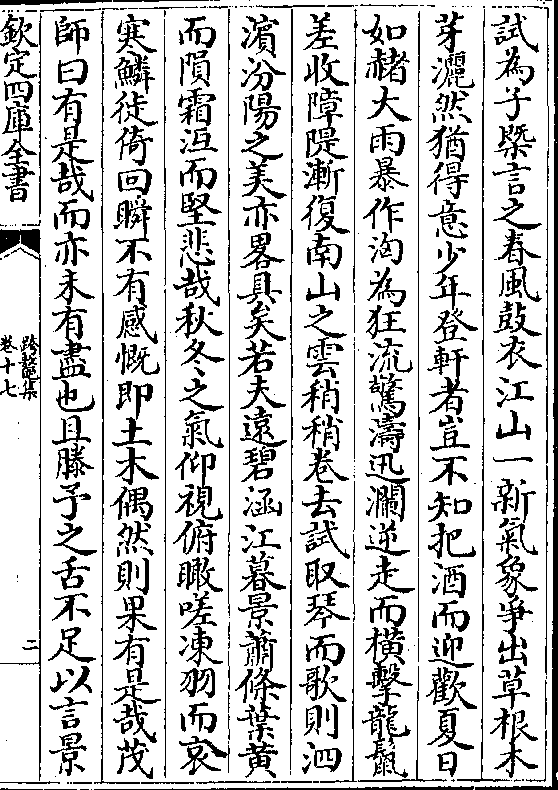 試為子槩言之春風鼓衣江山一新氣象爭出草根木
芽灑然猶得意少年登軒者豈不知把酒而迎歡夏日
如赭大雨暴作洶為狂流驚濤迅瀾逆走而橫擊龍鬣
差收障隄漸復南山之雲稍稍卷去試取琴而歌則泗
濵汾陽之美亦畧具矣若夫遠碧涵江暮景蕭條葉黃
而隕霜沍而堅悲哉秋冬之氣仰視俯瞰嗟凍羽而哀
寒鱗徙倚回瞬不有感慨即土木偶然則果有是哉茂
師曰有是哉而亦未有盡也且賸予之舌不足以言景
欽定四庫全書
跨鼇集
卷十七
二